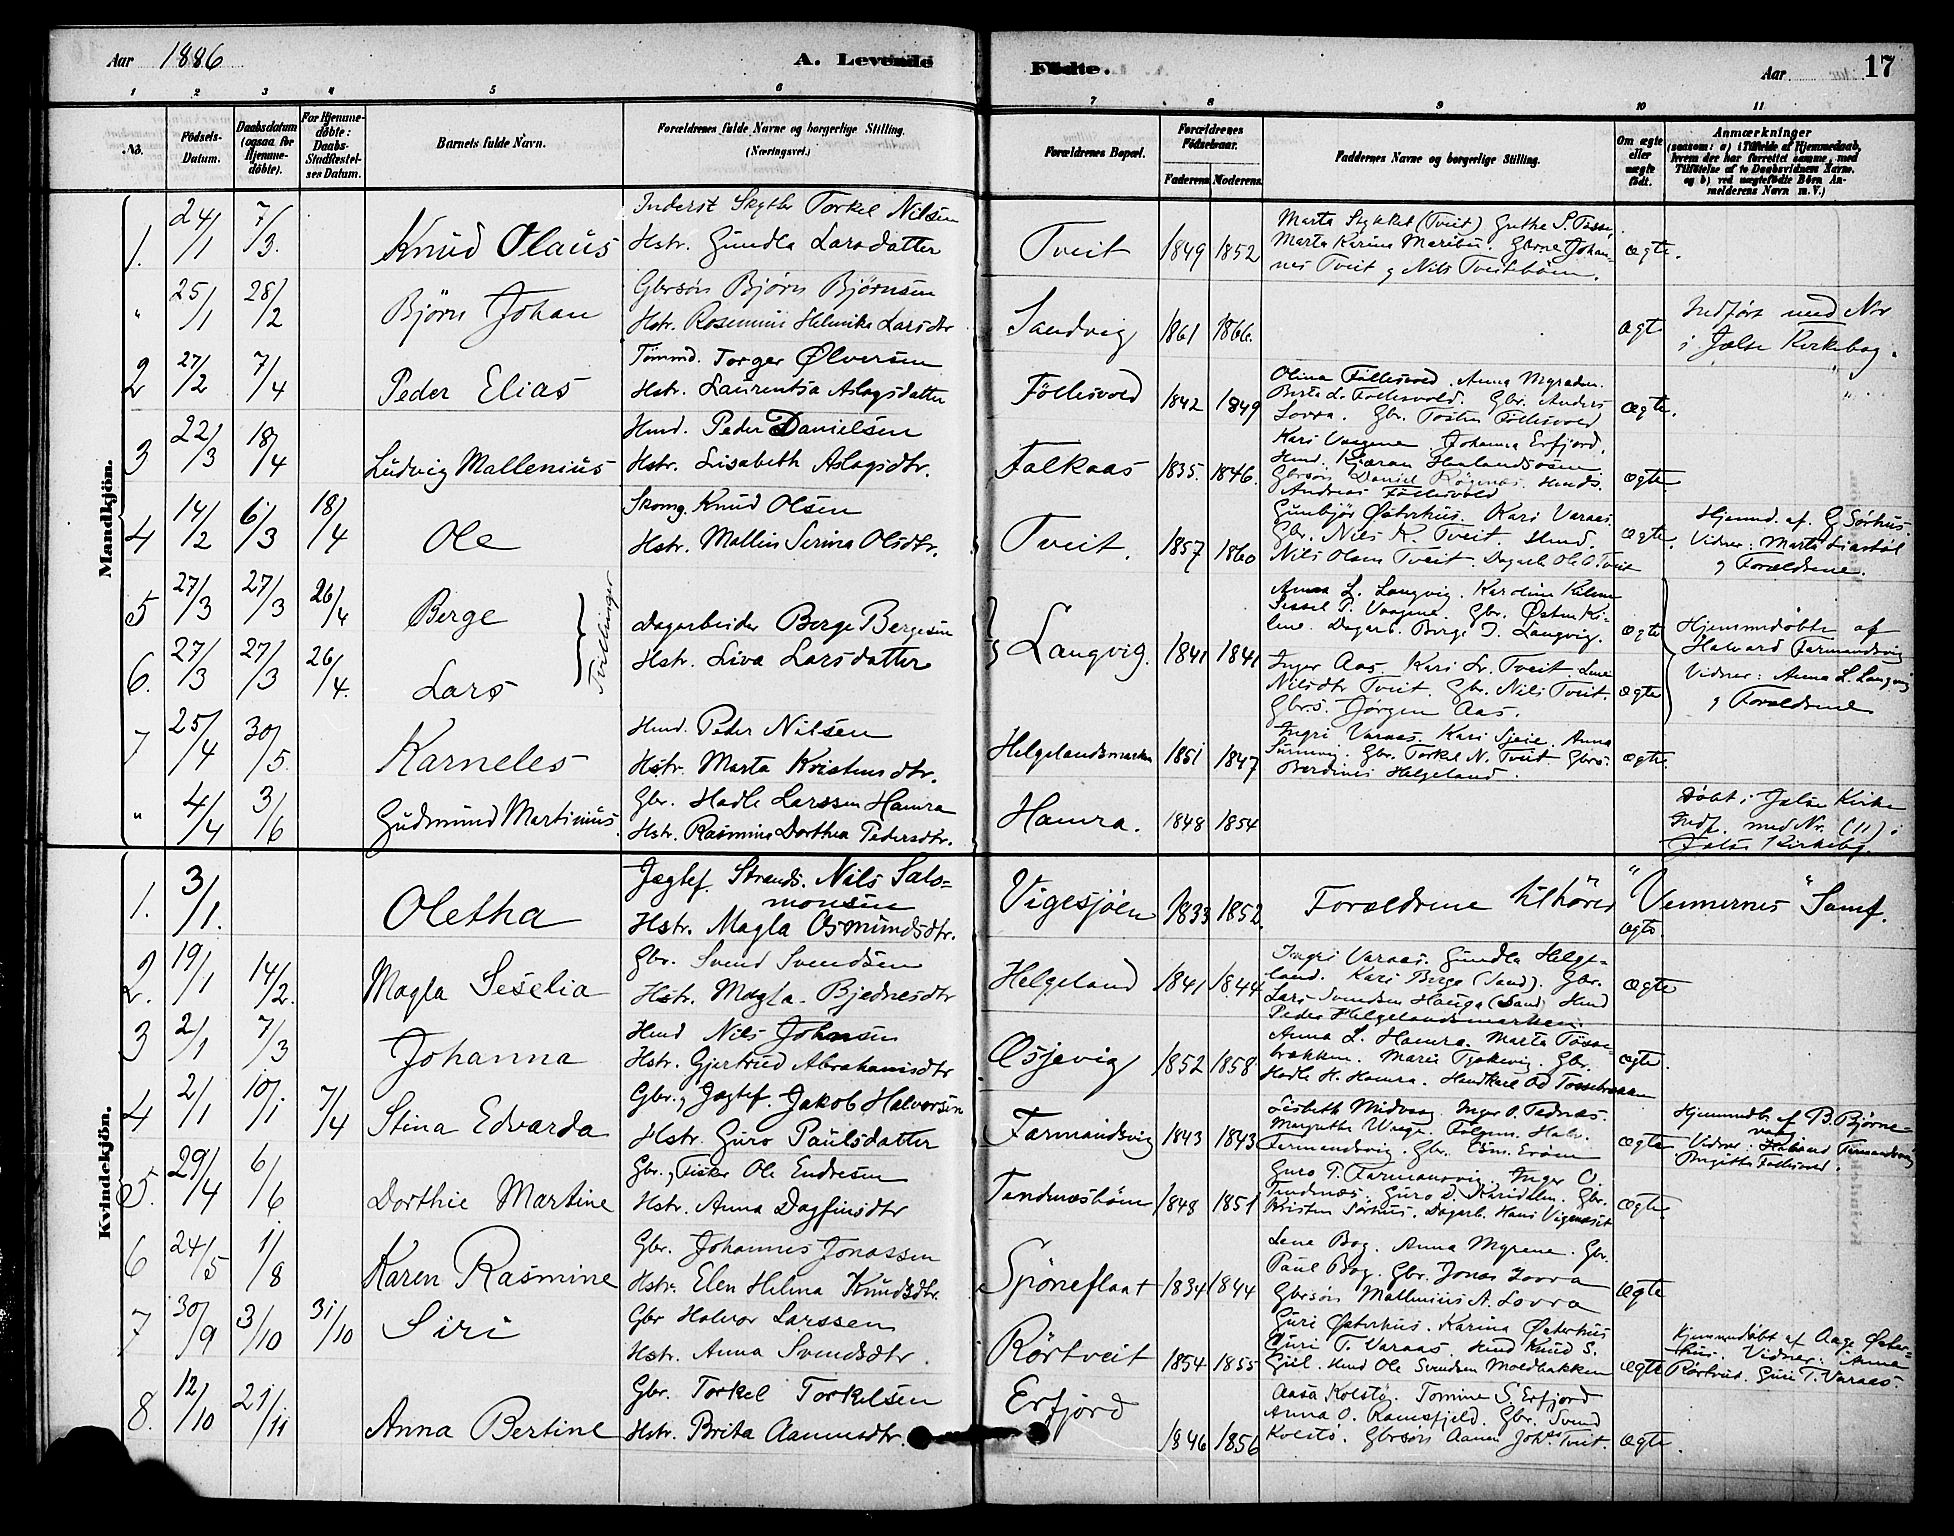 Aar 1886
A. Levende Fødte.
Aar
17
1 2 3 4 5 6 7 8 9 10 11
No.
Fødsels-Datum.
Daabsdatum (ogsaa for Hjemmedøbte).
For Hjemmedøbte: Daabs-Stadfæstelses Datum.
Barnets fulde Navn.
Forældrenes fulde Navne og borgerlige Stilling. (Næringsvei.)
Forældrenes Bopæl.
Forældrenes Fødselsaar.
Faderens. Moderens.
Faddernes Navne og borgerlige Stilling.
Om ægte eller uægte født.
Anmærkninger
(saasom: a) i Tilfælde af Hjemmedaab, hvem der har forrettet samme, med Tilføielse af to Daabsvidners Navne, og b) ved uægtefødte Børn Anmelderens Navn m. V.)
Mandkjön.
1. 24/1 7/3. Knud Olaus
Inderst Torkel Nilsen
Hstr. Gundla Larsdatter
Tveit 1849 1852
Marta (Tveit) Grethe S.
Marta Karina Gbrne Johan-
nes Tveit og Nils
ægte.
" 25/1 28/2 Björn Johan
Gbrsøn Bjørn Bjørnsen
Hstr. Helmike Larsdtr
Sandvig 1861 1866.
ægte
Indført med Nr
i Jælse Kirkebog.
2 27/2 7/4 Peder Elias
Tømmd. Torger Ølversen
Hstr. Laurentsa Aslagsdatter
Föllesvold 1842 1849
Olina Föllesvold. Anna
Berta L. Föllesvold. Gbr. Anders
Lovra. Gbr. Tosten Föllesvold
ægte.
3 22/3 18/4 Ludvig Mallenius
Hmd. Peder Danielsen
Hstr. Lisabeth Aslagsdtr.
Falkaas 1835. 1846.
Kari Vaagene. Johanna Erfjord.
Hmd. Kjæran
Gbrsøn Daniel Hmds.
Andreas Föllesvold
ægte
4 14/2 6/3 18/4 Ole
Skomg. Knud Olsen
Hstr. Mallin Serina Olsdtr.
Tveit. 1857 1860
Gunbjør Østerhus. Kari Varaas.
Gbr. Nils K. Tveit Hmd.
Nils Olsen Tveit. Dagarb. Ole O. Tveit
ægte.
Hjemmd. af G Sørhus.
Vidner: Marta
og Forældrene.
5 27/3 27/3 26/4 Berge
6. 27/3 27/3 26/4. Lars
Tvillinger
Dagarbeider Berge Bergesen
Hstr. Siva Larsdatter
Langvig. 1841 1841
Anna L. Langvig. Karoline Kilene
Sessel P. Vaagene. Gbr. Østen Ki-
lene. Dagarb. Berge J. Langvig.
ægte
Inger Aas. Kari Tveit. Lene
Nilsdtr Tveit. Gbr. Nils Tveit.
Gbrs. Jørgen Aas.
ægte
Hjemmedøbte af
Halvard Farmandsvig
Vidner: Anna L. Langvig
og Forældrene
7 25/4 30/5. Karneles
Hmd. Peder Nilsen
Hstr. Marta Kristensdtr.
Helgelandsmarken 1851 1847
Ingri Varaas. Kari Anna
Gbr. Torkel N. Tveit. Gbrs.
Helgeland.
ægte.
" 4/4 3/6 Gudmund Martinius.
Gbr. Hadle Larssen Hamra
Hstr. Rasmine Dorthea Pedersdtr.
Hamra. 1848 1854
Døbt i Jelse Kirke
Indf. med Nr. (11) i
Jelse Kirkebg.
Kvindekjön.
1. 3/1. Oletha
Jægtef. Strands. Nils Salo-
monsen
Hstr. Magla Osmundsdtr.
Vigesjöen 1833 1852.
Forældrene tilhörer "Vennernes" Samf.
ægte.
2. 19/1 14/2. Magla Seselia
Gbr. Svend Svendsen
Hstr. Magla Bjednesdtr
Helgeland 1841 1844
Ingri Varaas. Gundla Helge-
land. Kari Berge (Sand). Gbr.
Lars Svendsen Hauge (Sand) Hmd
Peder Helgelandsmarken.
ægte
3 2/1 7/3 Johanna
Hmd Nils Johnsen
Hstr. Gjertrud Abrahamsdtr
Osjevig 1852 1858
Anna L. Hamra. Marta Tøsse-
brækken. Maria Gbr.
Hadle H. Hamra. Od Tossebrækken
ægte.
4 2/1 10/1 7/4 Stina Edvarda
Gbr. og Jagtef. Jakob Halvorsen
Hstr. Guro Paulsdatter
Farmandsvig 1843 1843
Lisbeth Midvaag. Inger O.
Halv.
Farmandsvig. Gbr. Osm.
ægte
Hjemmdb. af B. Bjørne-
Vidner: Halvard Farmandsvig
Birgitta Follesvold.
5. 29/4 6/6 Dorthie Martine
Gbr. og Fisker Ole Endresen
Hstr. Anna Dagfinsdtr
1848 1851
Guro P. Farmansvig. Inger O.
Guro D. Gbr.
Kristen Sørhus. Dagarb. Hans
ægte.
6 24/5 1/8 Karen Rasmine
Gbr. Johannes Jonassen
Hstr. Elen Helena Knudsdtr.
Spöneflaat 1834 1844
Lene Bog. Anna Myrene. Gbr.
Paul Bog. Gbr. Jonas Lovra
Gbrsøn Mallenius A. Lovra
ægte
7 30/9 3/10 31/10 Siri
Gbr Halvor Larssen
Hstr. Anna Svendsdtr.
Rörtveit 1854 1855
Guri Østerhus. Karina Østerhus
Guri T. Varaas. Hmd Knud S.
Hmd Ole Svendsen Moldbakken
ægte
Hjemmedøbt af Aage Øster-
hus. Vidner: Anna
Guri T. Varaas.
8. 12/10 21/11 Anna Bertine
Gbr. Torkel Torkelsen
Hstr. Brita Aanensdtr.
Erfjord 1846 1856
Aasa Kolstø. Tomine S. Erfjord
Anna O. Ramsfjeld. Gbr. Svend
Kolstø. Gbrsøn Aanen Tveit.
ægte.